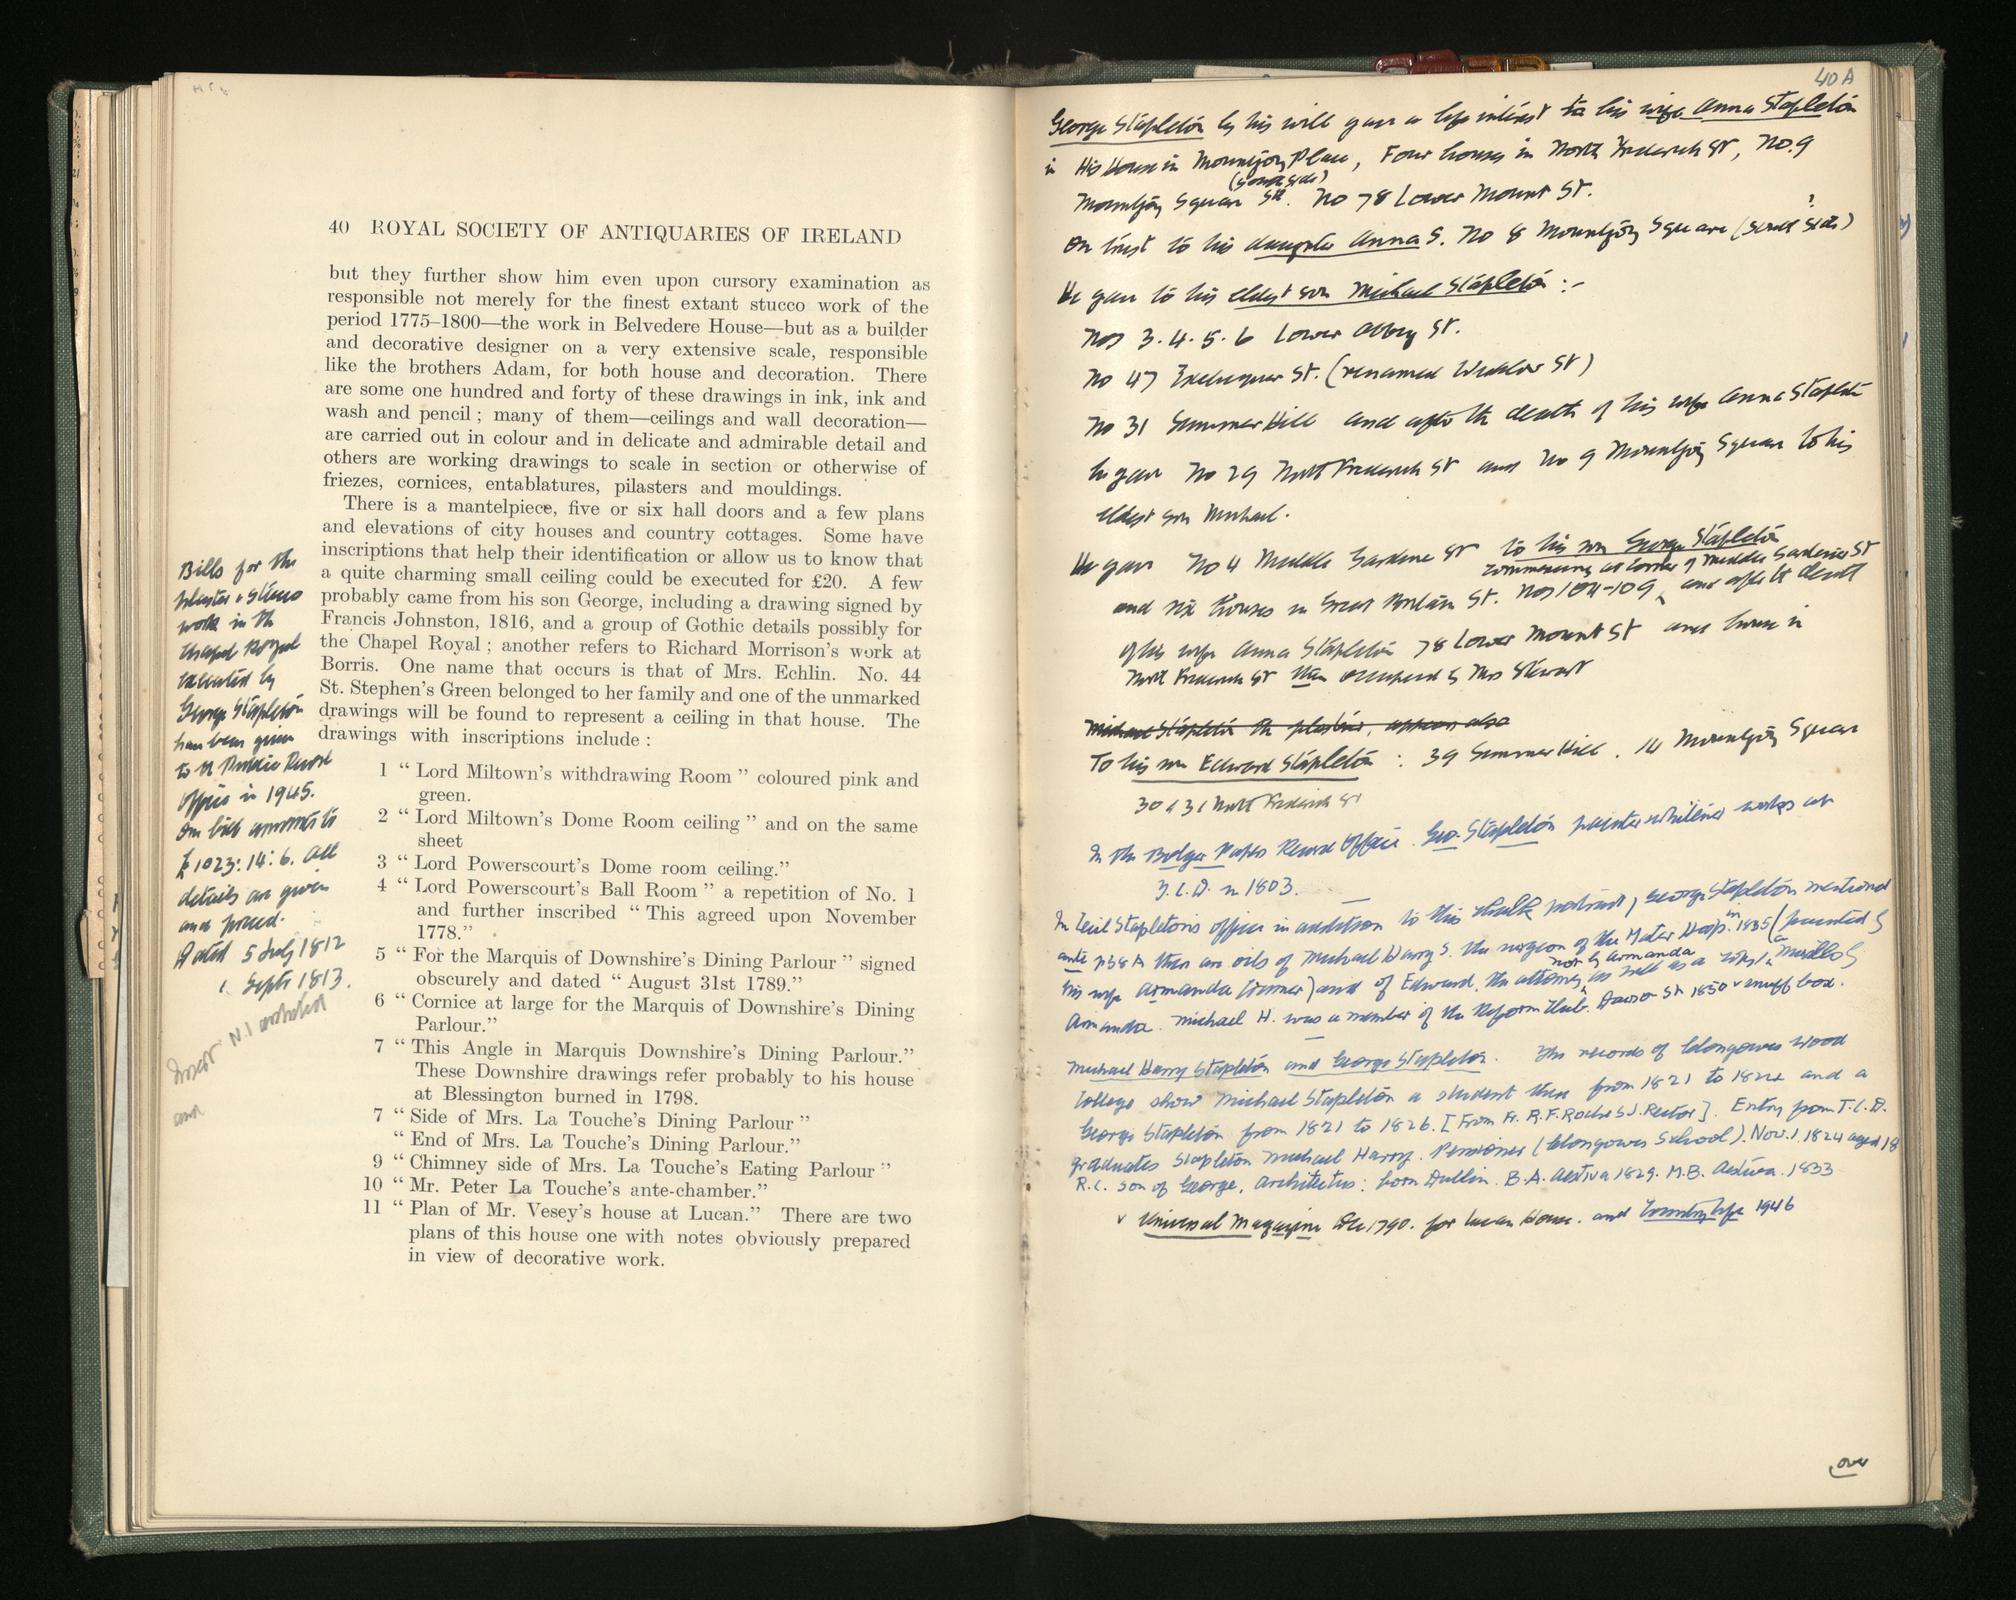 40 ROYAL SOCIETY OF ANTIQUARIES OF IRELAND
but they further show him even upon cursory examination as
responsible not merely for the finest extant stucco work of the
period 1775–1800—the work in Belvedere House—but as a builder
and decorative designer on a very extensive scale, responsible
like the brothers Adam, for both house and decoration. There
are some one hundred and forty of these drawings in ink, ink and
wash and pencil; many of them—ceilings and wall decoration—
are carried out in colour and in delicate and admirable detail and
others are working drawings to scale in section or otherwise of
friezes, cornices, entablatures, pilasters and mouldings.
There is a mantelpiece, five or six hall doors and a few plans
and elevations of city houses and country cottages. Some have
inscriptions that help their identification or allow us to know that
a quite charming small ceiling could be executed for £20. A few
probably came from his son George, including a drawing signed by
Francis Johnston, 1816, and a group of Gothic details possibly for
the Chapel Royal; another refers to Richard Morrison's work at
Borris. One name that occurs is that of Mrs. Echlin. No. 44
St. Stephen's Green belonged to her family and one of the unmarked
drawings will be found to represent a ceiling in that house. The
drawings with inscriptions include:
1 “Lord Miltown's withdrawing Room” coloured pink and
green.
2 “Lord Miltown's Dome Room ceiling” and on the same
sheet
3 “Lord Powerscourt's Dome room ceiling.”
4 “Lord Powerscourt's Ball Room” a repetition of No. 1
and further inscribed “This agreed upon November
1778.”
5 “For the Marquis of Downshire's Dining Parlour” signed
obscurely and dated “August 31st 1789.”
6 “Cornice at large for the Marquis of Downshire's Dining
Parlour.”
7 “This Angle in Marquis Downshire's Dining Parlour.”
These Downshire drawings refer probably to his house
at Blessington burned in 1798.
7 “Side of Mrs. La Touche's Dining Parlour”
“End of Mrs. La Touche's Dining Parlour.”
9 “Chimney side of Mrs. La Touche's Eating Parlour”
10 “Mr. Peter La Touche's ante-chamber.”
11 “Plan of Mr. Vesey's house at Lucan.” There are two
plans of this house one with notes obviously prepared
in view of decorative work.
Bills for the
plaster & stucco
work in the
Chapel Royal
executed by
George Stapleton
have been given
to the Public Record
Office in 1945.
One bill amounts to
£1023:14:6. All
details are given
and priced.
Dated 5 July 1812
" Septr 1813.
and
40A
George Stapleton by his will gave a life interest to his wife Anna Stapleton
in His House in Mountjoy Place, Four houses in North Frederick St, No. 9
Mountjoy Square (South Side). No 78 Lower Mount St.
On trust to his daughter Anna S. No 8 Mountjoy Square (South Side) ?
He gave to his eldest son Michael Stapleton :-
Nos 3.4.5.6 Lower Abbey St.
No 47 Exchequer St. (renamed Wicklow St)
No 31 Summer Hill and after the death of his wife Anna Stapleton
he gave No 29 North Frederick St and No 9 Mountjoy Square to his
eldest son Michael.
He gave No 4 Middle Gardiner St to his son George Stapleton
commencing at corner of Middle Gardiner St
and six houses in Great Britain St. Nos 104-109 and after the death
of his wife Anna Stapleton 78 Lower Mount St and house in
North Frederick St then occupied by Mrs Stewart
Michael Stapleton the plasterer, appears also
To his son Edward Stapleton : 39 Summer Hill. 14 Mountjoy Square
30 & 31 North Frederick St
In the Bolger Papers Record Office. Geo. Stapleton painter whitener works at
T.C.D. in 1803.
In Cecil Stapleton's office in addition to this chalk portrait, George Stapleton mentioned
ante p38A there are oils of Michael Harry S. the surgeon of the Mater Hosp. in 1835 (painted by
his wife Armanda ) and of Edward, the attorney, not by Armanda as well as a
Armanda. Michael H. was a member of the Reform Club. Dawson St 1850 v snuff box.
Michael Harry Stapleton and George Stapleton. The records of Clongowes Wood
College show Michael Stapleton a student there from 1821 to 1824 and a
George Stapleton from 1821 to 1826. [From Fr. R.F. Roche S.J. Rector]. Entry from T.C.D.
graduates Stapleton Michael Harry. Pensioner (Clongowes School). Nov. 1. 1824 aged 18
R.C. son of George, Architectus; born Dublin. B.A. Aestiva 1829. M.B. Aestiva. 1833
v Universal Magazine Dec 1790. for Lucan House. and Country Life 1946
over